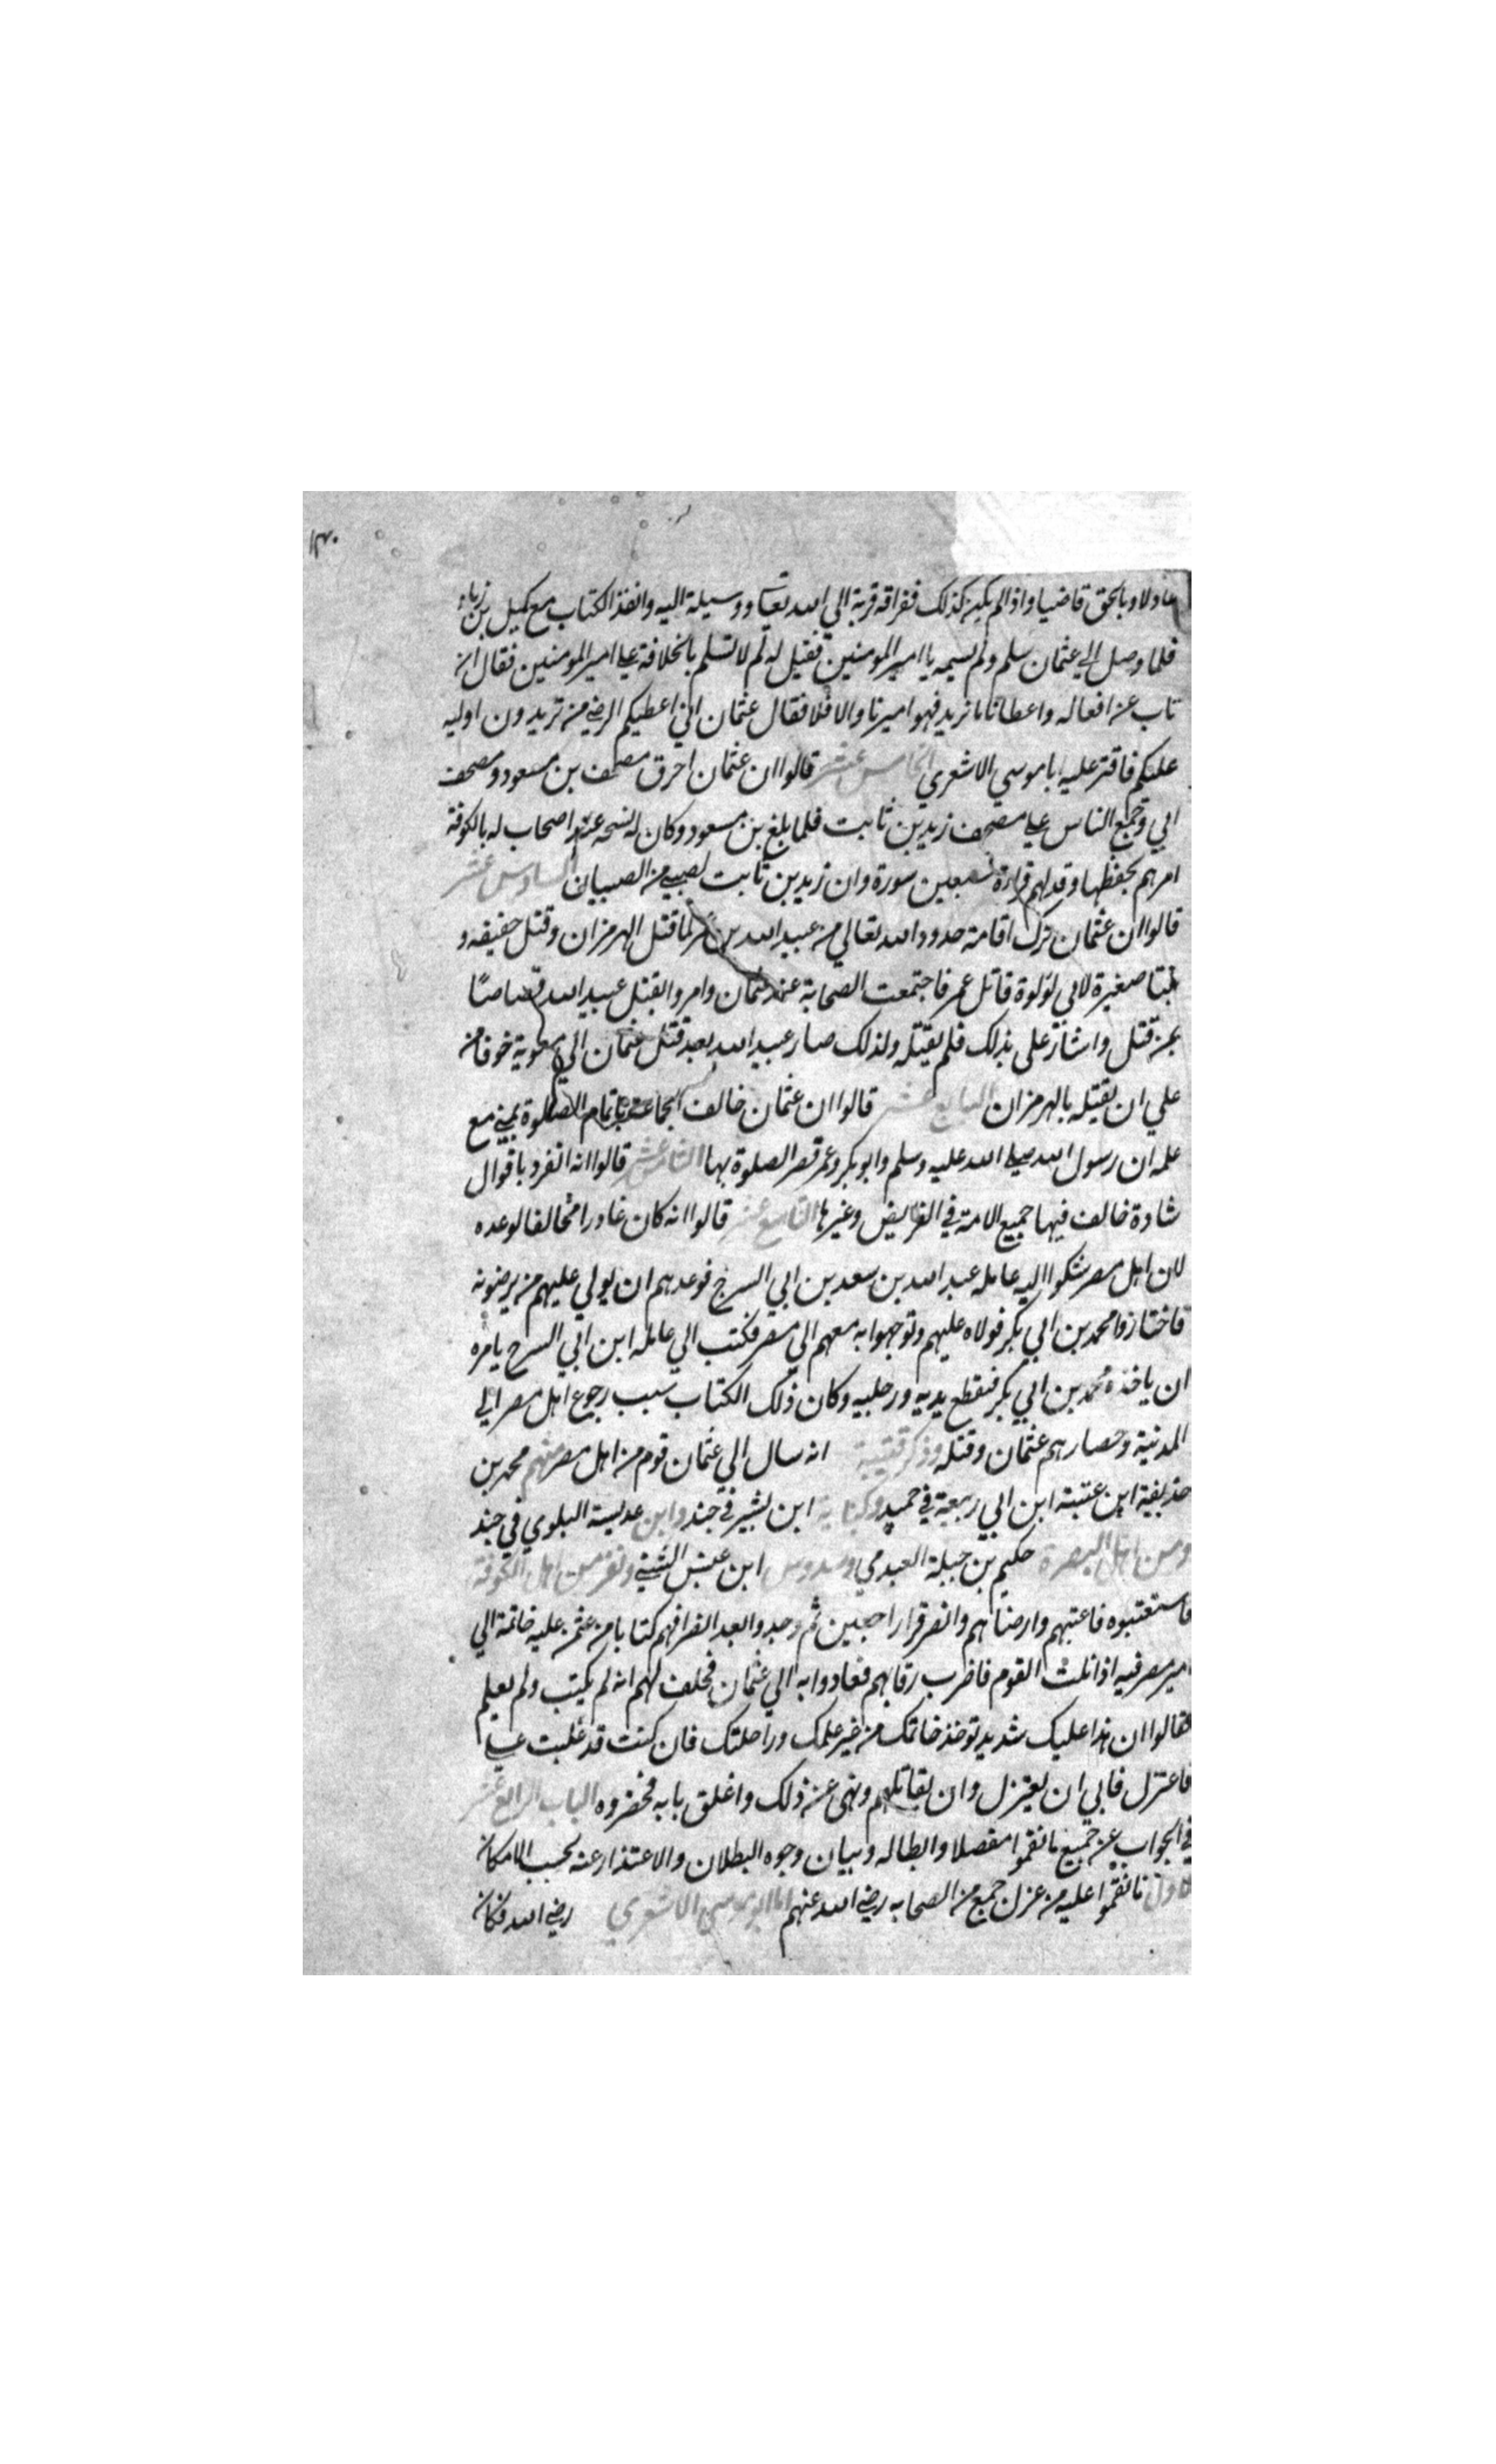 ١٣٠
عادلا وبالحق قاضيا واذا لم يكن كذلك ففراقه قربة الي الله تعالي ووسيلة اليه وانفذ الكتاب مع كميل بن زياد
فلما وصل الي عثمان سلم ولم يسميه يا امير المومنين فقيل له لم لا تسلم بالخلافة علي امير المومنين فقال ان
تاب عن افعاله واعطانا ما نريد فهو اميرنا والا فلا فقال عثمان اني اعطيكم الرضي من تريدون اوليه
عليكم فاقتر عليه ابا موسي الاشعري الخامس عشر قالوا ان عثمان احرق مصحف بن مسعود ومصحف
ابي وجمع الناس علي مصحف زيد بن ثابت فلما بلغ بن مسعود وكان له نسخه عند اصحاب له بالكوفة
امرهم بحفظها وقد لهم قراءة سبعين سورة وان زيد بن ثابت لصبي من الصبيان السادس عشر
قالوا ان عثمان ترك اقامة حدود الله تعالي من عبيد الله بن عمر لما قتل الهرمزان وقتل حفيفه و
بنتا صغيرة لابي لؤلوة قاتل عمر فاجتمعت الصحابة عند عثمان وامروا بقتل عبيد الله قصاصا
بمن قتل واشار علي بذلك فلم يقتله ولذلك صار عبيد الله بعد قتل عثمان الي معوية خوفا من
علي ان يقتله بالهرمزان السابع عشر قالوا ان عثمان خالف الجماعة باتمام الصلوة بمني مع
علمه ان رسول الله صلي الله عليه وسلم وابو بكر وعمر قصر الصلوة بها الثامن عشر قالوا انه انفرد باقوال
شادة خالف فيها جميع الامة في الفرايض وغيرها التاسع عشر قالوا انه كان غادرا مخالفا لوعده
لان اهل مصر شكوا اليه عامله عبد الله بن سعد بن ابي السرح فوعدهم ان يولي عليهم من يرضونه
فاختاروا محمد بن ابي بكر فولاه عليهم وتوجهوا به معهم الي مصر فكتب الي عامله ابن ابي السرح يامره
ان ياخذه محمد بن ابي بكر فيقطع يديه ورجليه وكان ذلك الكتاب سبب رجوع اهل مصر الي
المدنية وحصارهم عثمان وقتله وذكر قتيبة انه سال الي عثمان قوم من اهل مصر منهم محمد بن
حذيفية ابن عتبة ابن ابي ربيعة في حميد وكنانة ابن بشير في جند وابن عديسة البلوي في جند
ومن اهل البصرة حكيم بن جبلة العبدمي وسدوس ابن عبس الشني ونفر من اهل الكوفة
فاستعتبوه فاعتبهم وارضاهم وانصرفوا راجعين ثم وجدوا بعد انصرافهم كتابا من عثمن عليه خاتمة الي
امير مصر فيه اذا اتلت القوم فاضرب رقابهم فعادوا به الي عثمان فحلف لهم انه لم يكتب ولم يعلم
فقالوا ان هذا عليك شديد توخذ خاتمك من غير علمك وراحلتك فان كنت قد غلبت علي
فاعتزل فابي ان يعتزل وان يقاتلهم ونهي عن ذلك واغلق بابه فحضروه الباب الرابع عشر
في الجواب عن جميع ما نقموا مفصلا وابطاله وبيان وجوه البطلان والاعتذار عنه بحسب الامكان
الاول ما نقموا عليه من عزل جمع من الصحابه رضي الله عنهم اما ابو موسي الاشعري رضي الله فكان